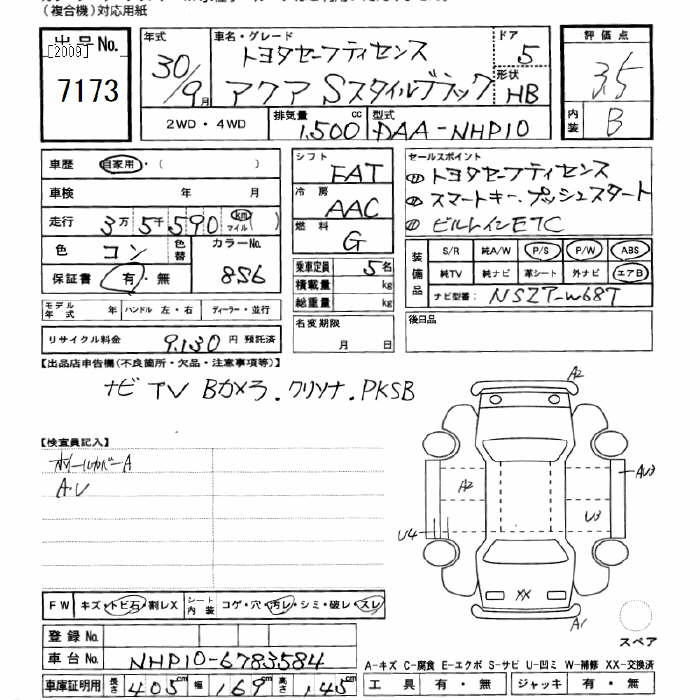 (複合機)対応用紙
出品No.
[2009]
7173
年式 30/9月
車名・グレード トヨタセーフティセンス
アクア Sスタイルブラック
ドア 5
形状 HB
2WD・4WD
排気量 1,500 cc
型式 DAA-NHP10
評価点 3.5
内装 B
車歴 自家用・( )
車検 年 月
走行 3万5千590 km マイル ( )
色 コン 色替 カラーNo. 8S6
保証書 有・無
モデル年式 年 ハンドル 左・右 ディーラー・並行
リサイクル料金 9,130円 預託済
シフト FAT
冷房 AAC
燃料 G
乗車定員 5名
積載量 kg
総重量 kg
名変期限
月 日
セールスポイント
① トヨタセーフティセンス
② スマートキー、プッシュスタート
③ ビルトインETC
装備品 S/R 純A/W P/S P/W ABS
純TV 純ナビ 革シート 外ナビ エアB
ナビ型番 NSZT-W68T
後日品
【出品店申告欄(不良箇所・欠品・注意事項等)】
ナビ TV Bカメラ.クリソナ.PKSB
【検査員記入】
ホイールカバーA
A.U
A2
A2
AU3
U3
U4
XX
A1
スペア
FW キズ・トビ石・割レX シート内装 コゲ・穴・汚レ・シミ・破レ・スレ
登録No.
車台No. NHP10-6783584
車庫証明用 長さ 405cm 幅 169cm 高さ 145cm
A-キズ C-腐食 E-エクボ S-サビ U-凹ミ W-補修 XX-交換済
工具 有・無 ジャッキ 有・無